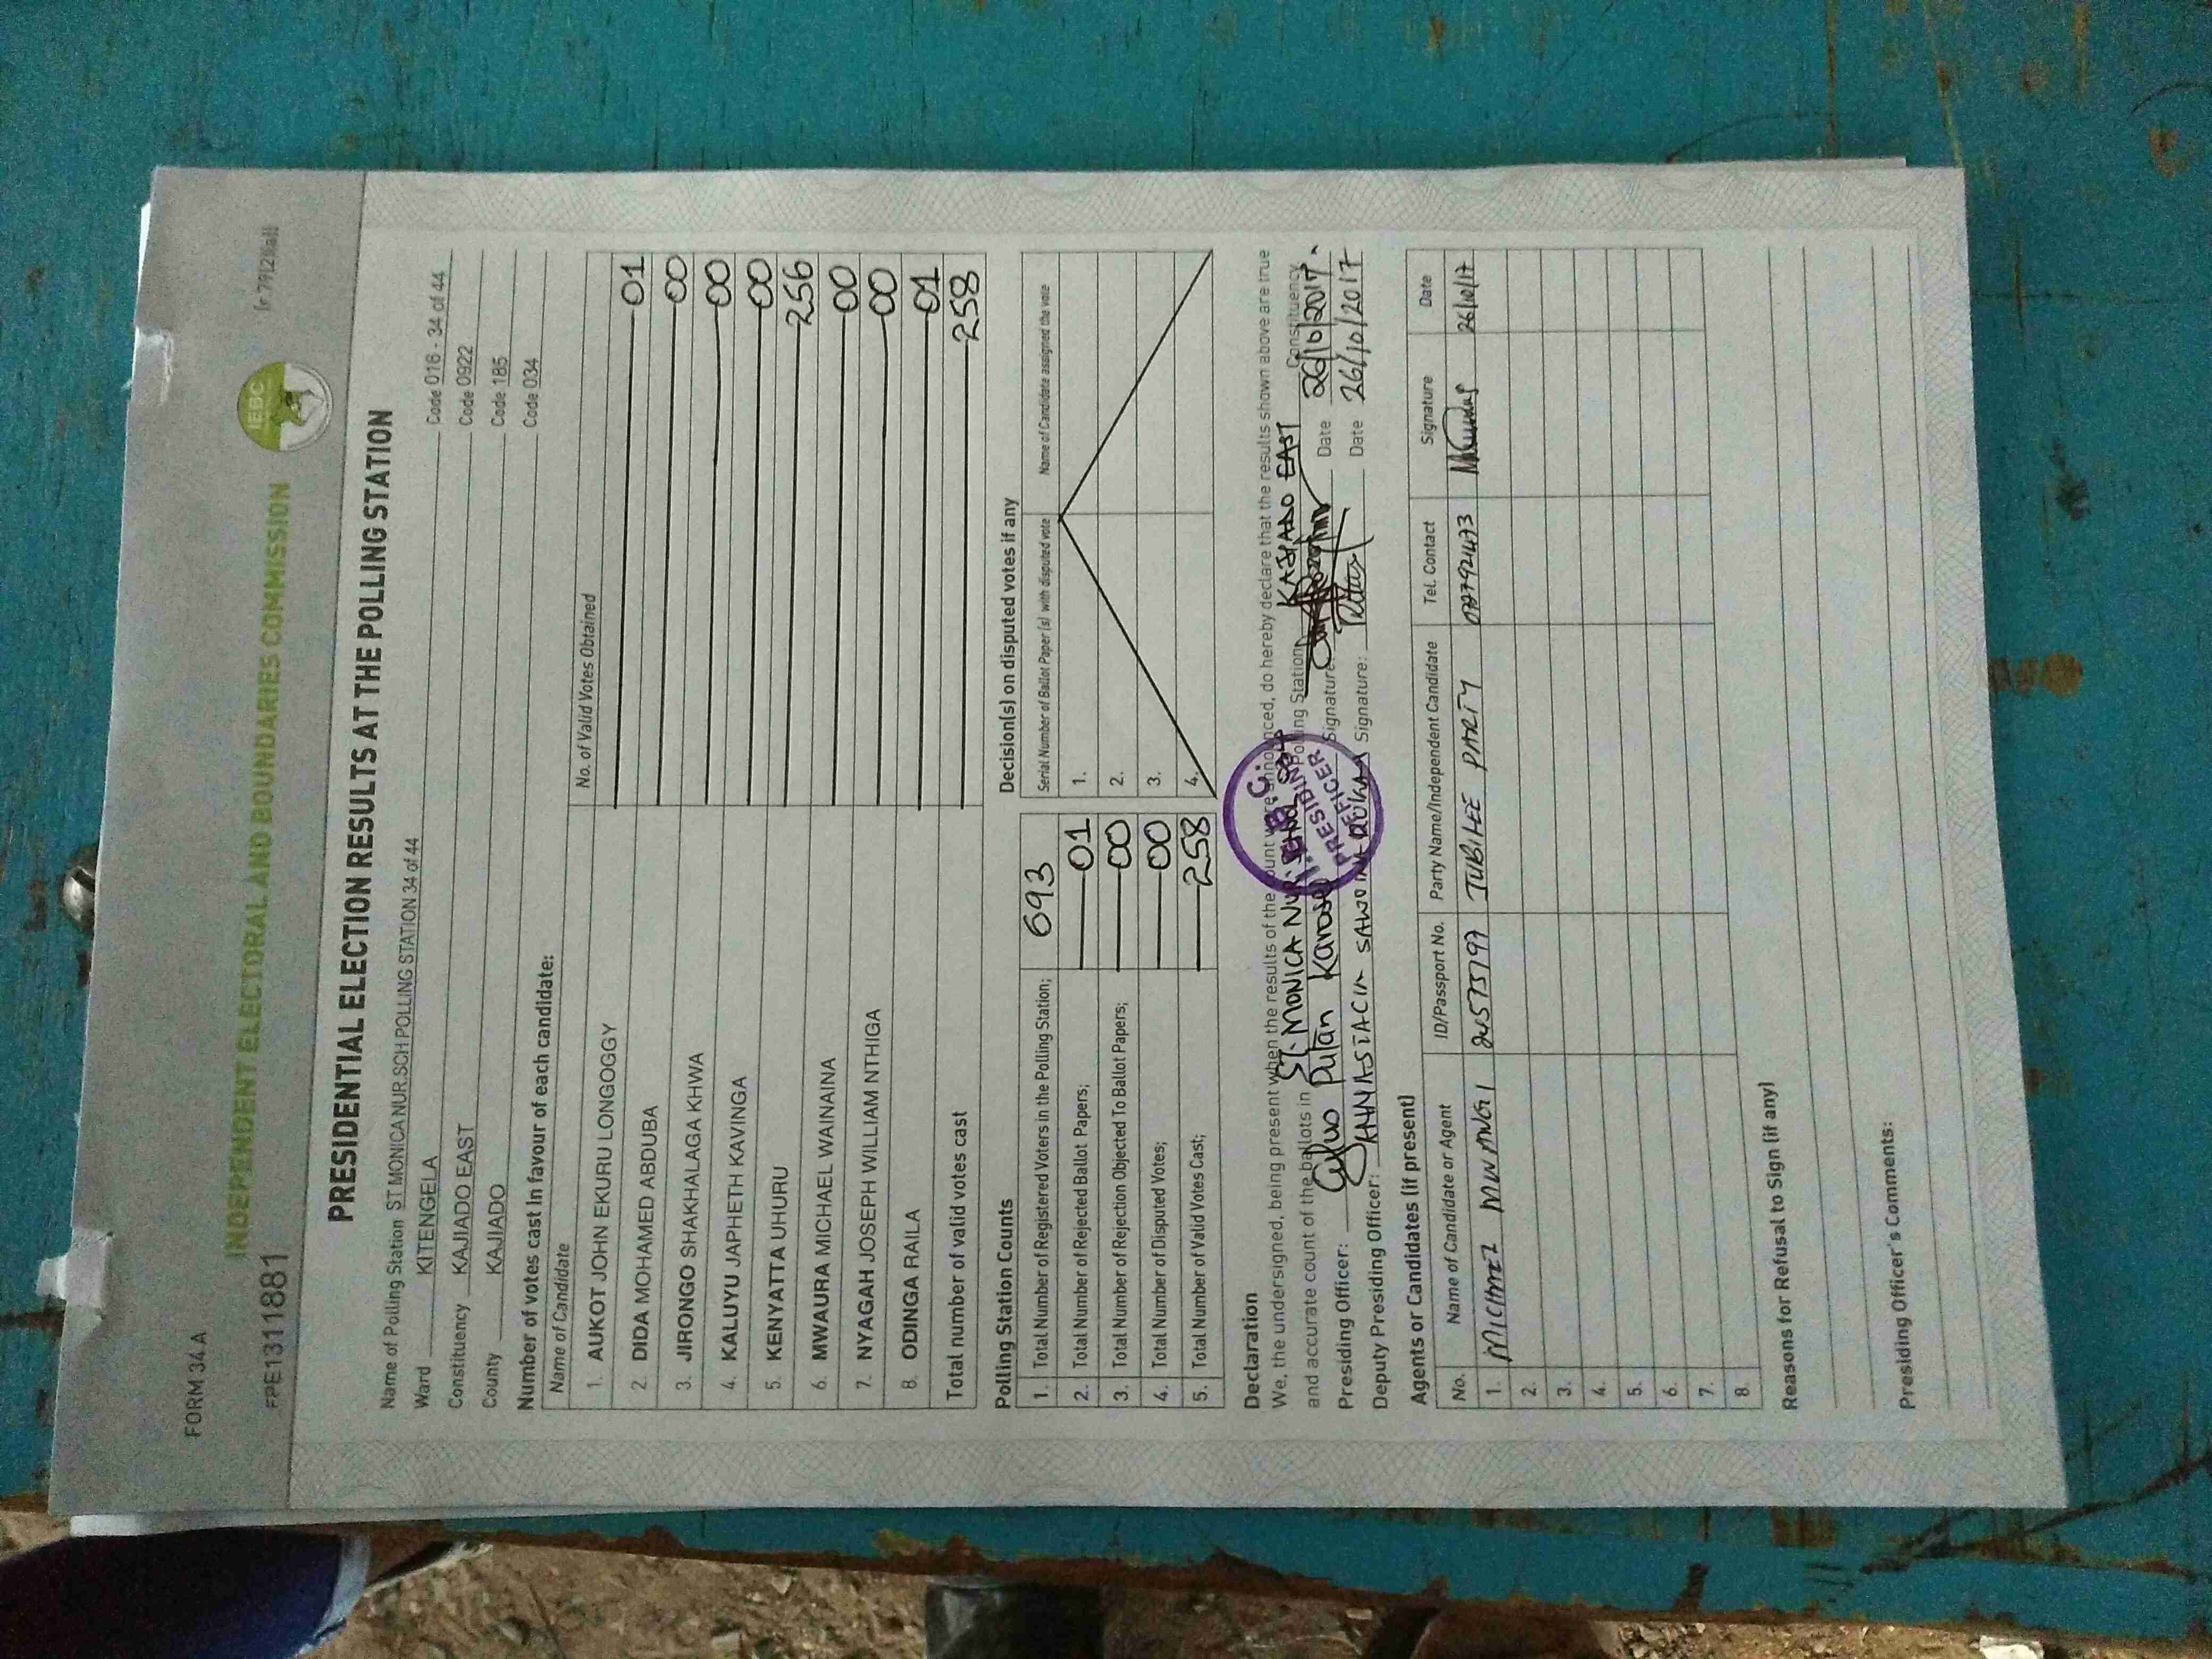 FORM 34A
[r 79(2)(a)]
FPE1311881
INDEPENDENT ELECTORAL AND BOUNDARIES COMMISSION
IEBC
PRESIDENTIAL ELECTION RESULTS AT THE POLLING STATION
Name of Polling Station ST MONICA NUR.SCH POLLING STATION 34 of 44 Code 018 - 34 of 44
Ward KITENGELA Code 0922
Constituency KAJIADO EAST Code 185
County KAJIADO Code 034
Number of votes cast in favour of each candidate:
Name of Candidate No. of Valid Votes Obtained
1. AUKOT JOHN EKURU LONGOGGY 01
2. DIDA MOHAMED ABDUBA 00
3. JIRONGO SHAKHALAGA KHWA 00
4. KALUYU JAPHETH KAVINGA 00
5. KENYATTA UHURU 256
6. MWAURA MICHAEL WAINAINA 00
7. NYAGAH JOSEPH WILLIAM NTHIGA 00
8. ODINGA RAILA 01
Total number of valid votes cast 258
Polling Station Counts
1. Total Number of Registered Voters in the Polling Station; 693
2. Total Number of Rejected Ballot Papers; 01
3. Total Number of Rejection Objected To Ballot Papers; 00
4. Total Number of Disputed Votes; 00
5. Total Number of Valid Votes Cast; 258
Decision(s) on disputed votes if any
Serial Number of Ballot Paper (s) with disputed vote Name of Candidate assigned the vote
1.
2.
3.
4.
Declaration
We, the undersigned, being present when the results of the count were announced, do hereby declare that the results shown above are true
and accurate count of the ballots in ST. MONICA NUR. Polling Station KAJIADO EAST Constituency
Presiding Officer: Signature: Date 26/10/2017
Deputy Presiding Officer: Signature: Date 26/10/2017
PRESIDING OFFICER
Agents or Candidates (if present)
No. Name of Candidate or Agent ID/Passport No. Party Name/Independent Candidate Tel. Contact Signature Date
1. MWANGI JUBILEE PARTY 26/10/17
2.
3.
4.
5.
6.
7.
8.
Reasons for Refusal to Sign (if any)
Presiding Officer's Comments: